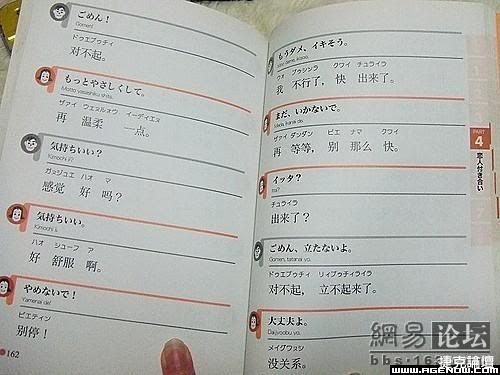 ごめん！
Gomen!
ドゥエブゥチィ
对不起。
もっとやさしくして。
Motto yasashiku shite.
ザァイ ウェヌルォウ イーディエヌ
再 温柔 一点。
気持ちいい？
Kimochi ii?
ガヌジュエ ハオ マ
感觉 好 吗？
気持ちいい。
Kimochi ii.
ハオ シューフ ア
好 舒服 啊。
やめないで！
Yamenai de!
ビエティン
别停！
162
もうダメ、イキそう。
Mou dame, ikisou.
ウオ ブゥシンラ クワイ チュライラ
我 不行了，快 出来了。
まだ、いかないで。
Mada, ikanai de.
ザァイ ダンダン ビエ ナマ クワイ
再 等等，别 那么 快。
イッタ？
Itta?
チュライラ
出来了？
ごめん、立たないよ。
Gomen, tatanai yo.
ドゥエブゥチィ リィブゥチィライラ
对不起， 立不起来了。
大丈夫よ。
Daijyoubu yo.
メイグワヌシ
没关系。
PART
4
恋人付き合い
網易 论坛
bbs.163
捷克論壇
WWW.AGENOW.COM